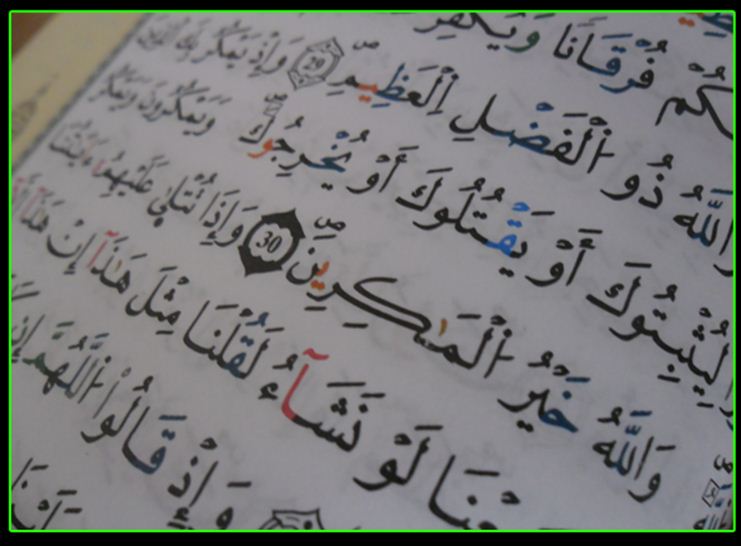 كُمْ فُرْقَانًا وَيُكَفِّرْ
اللَّهُ ذُو ٱلْفَضْلِ ٱلْعَظِيمِ 29 وَإِذْ يَمْكُرُ بِكَ ٱلَّذِينَ
لِيُثْبِتُوكَ أَوْ يَقْتُلُوكَ أَوْ يُخْرِجُوكَ وَيَمْكُرُونَ وَيَمْكُرُ
وَٱللَّهُ خَيْرُ ٱلْمَـٰكِرِينَ 30 وَإِذَا تُتْلَىٰ عَلَيْهِمْ ءَايَـٰتُنَا
عْنَا لَوْ نَشَآءُ لَقُلْنَا مِثْلَ هَـٰذَآ إِنْ هَـٰذَآ
وَإِذْ قَالُوا۟ ٱللَّهُمَّ إِن